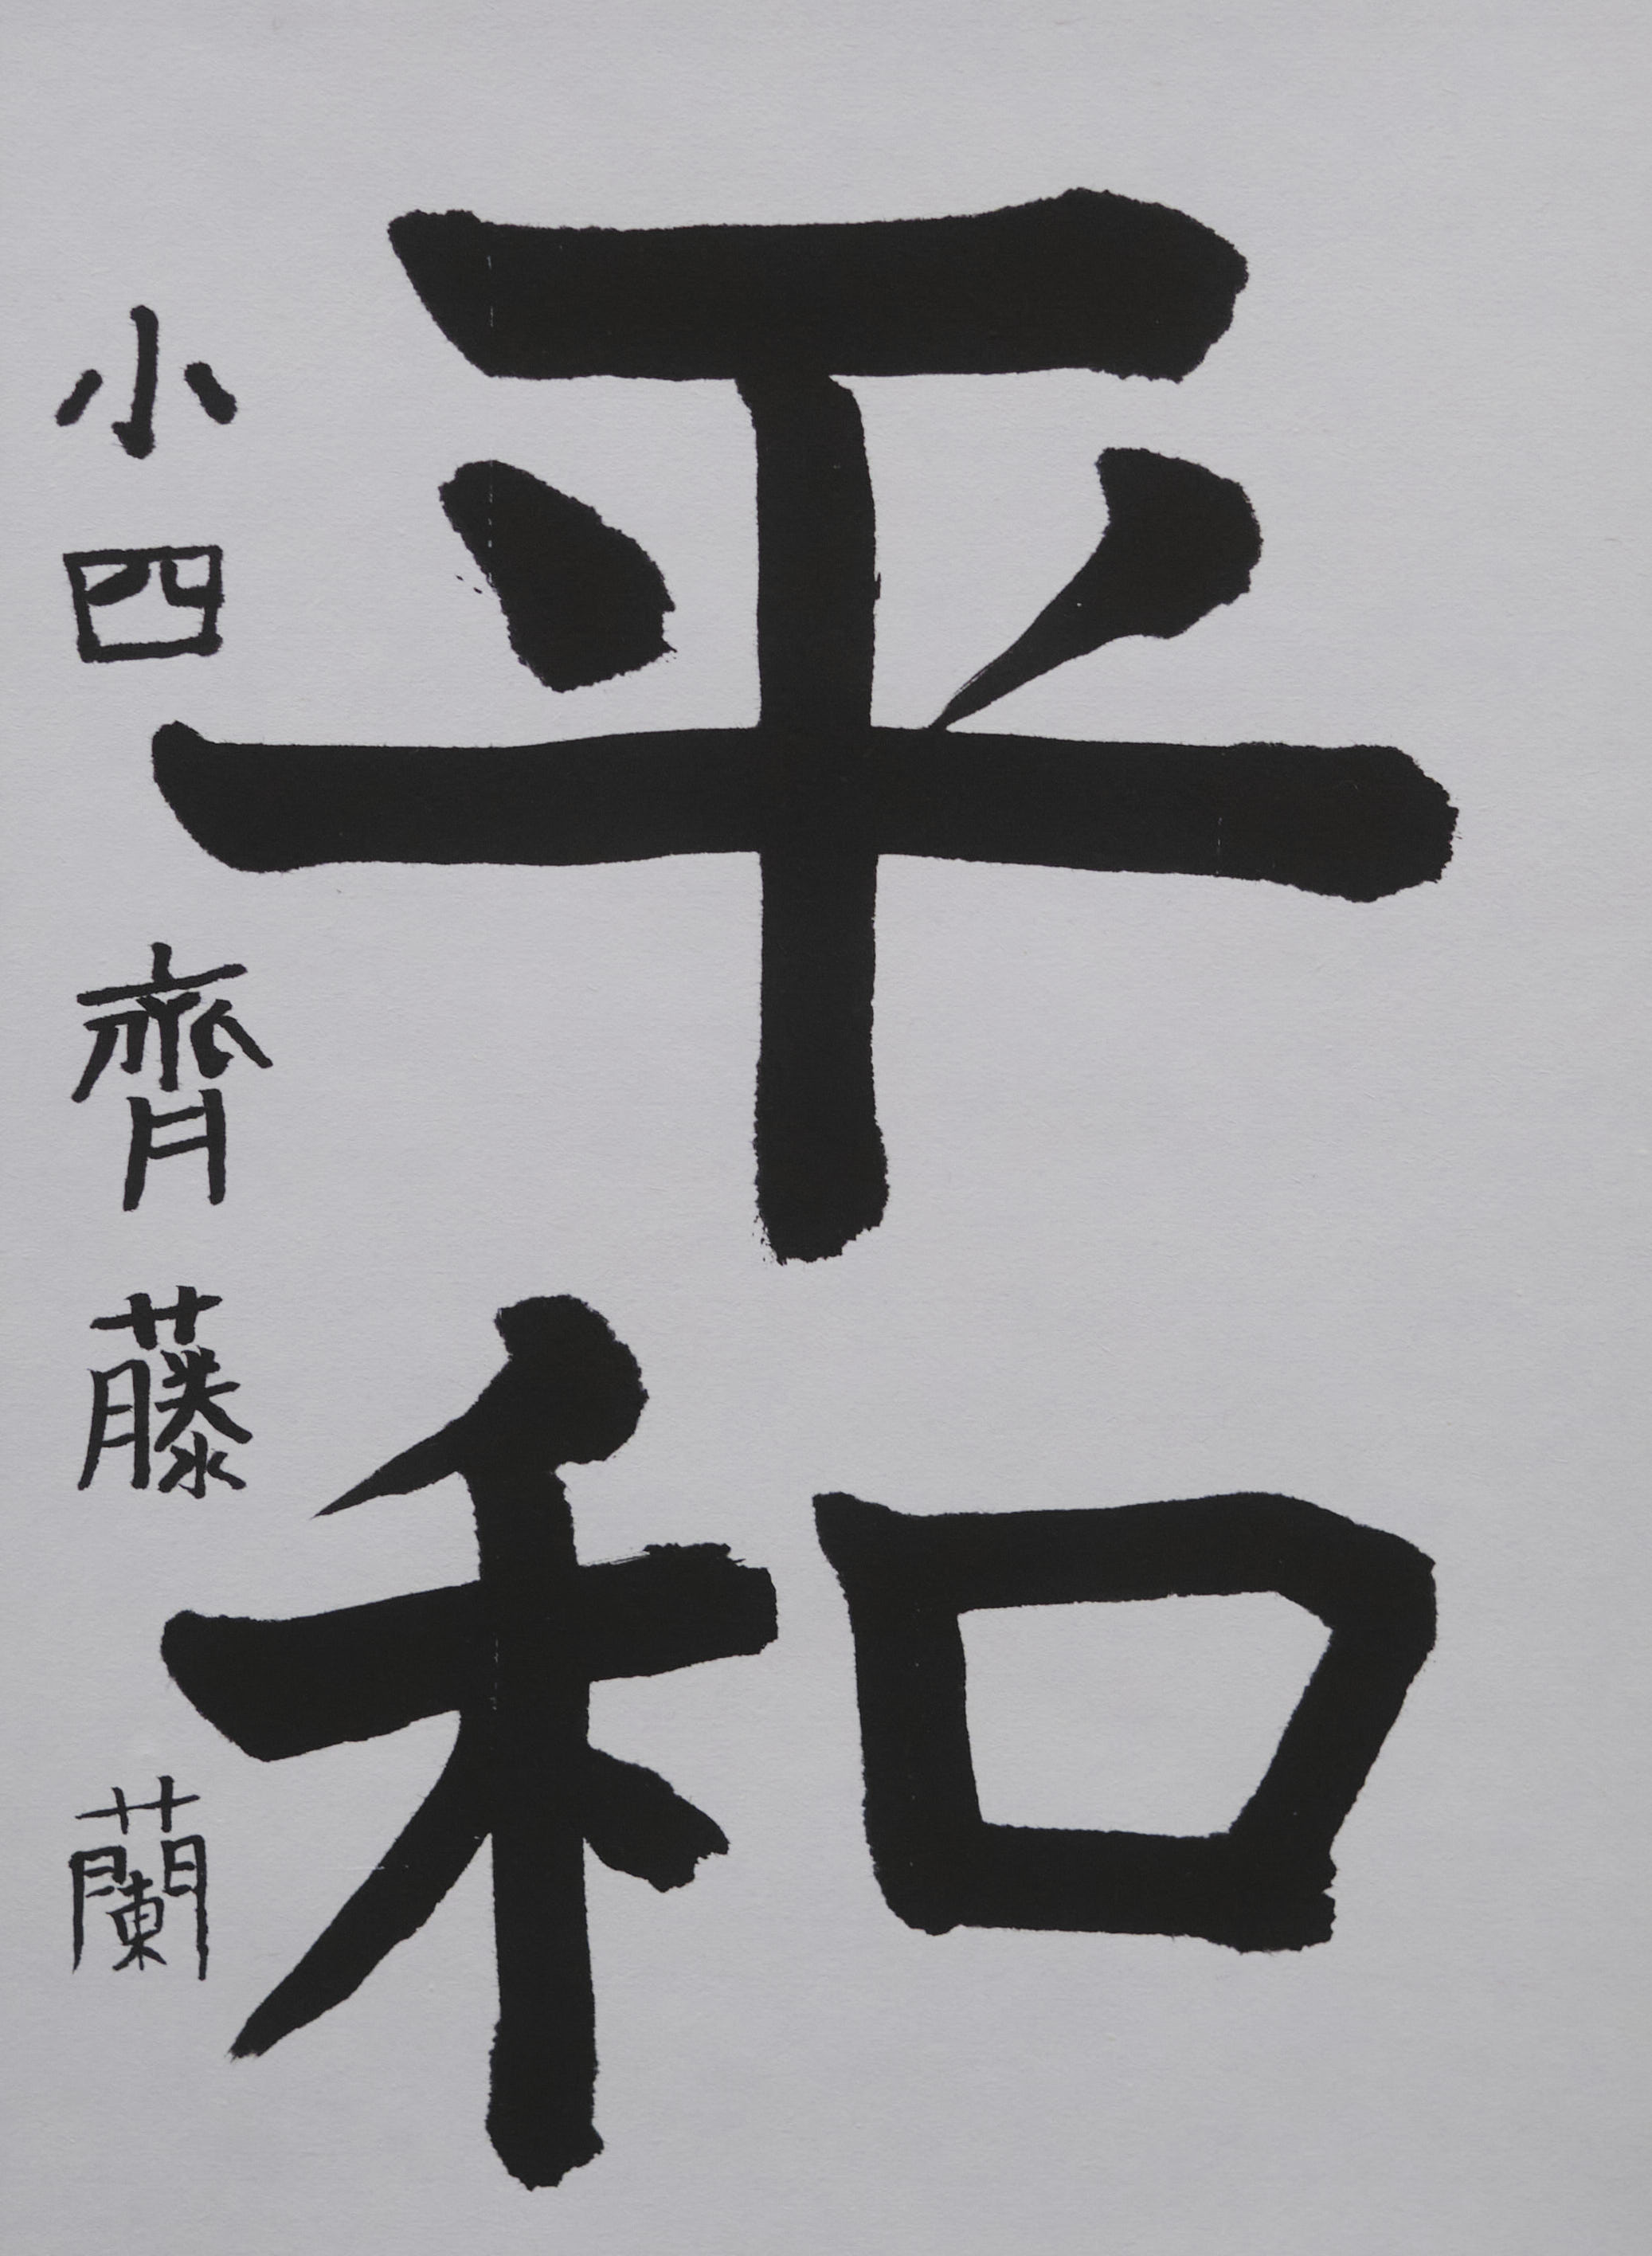 平和
小四 齊藤蘭